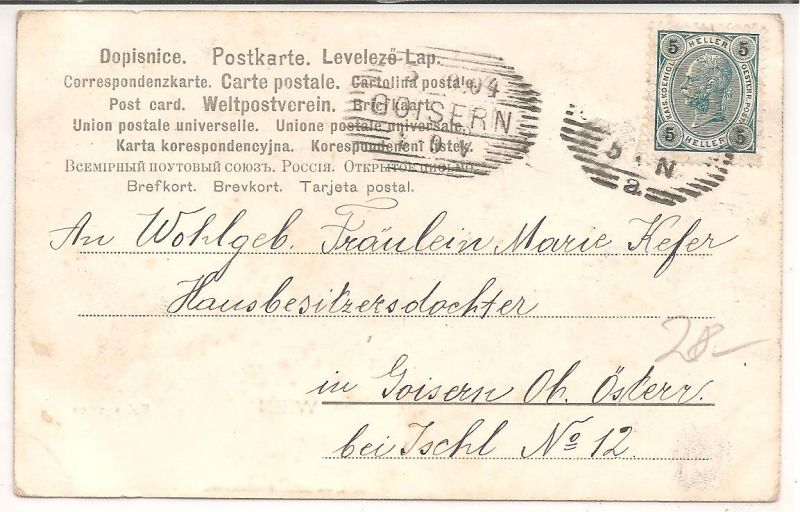 Dopisnice. Postkarte. Levelező-Lap.
Correspondenzkarte. Carte postale. Cartolina postale.
Post card. Weltpostverein. Briefkaart.
Union postale universelle. Unione postale universale.
Karta korespondencyjna. Korespondenční lístek.
ВСЕМІРНЫЙ ПОЧТОВЫЙ СОЮЗЪ. РОССІЯ. ОТКРЫТОЕ ПИСЬМО.
Brefkort. Brevkort. Tarjeta postal.
04
GOISERN
5 HELLER 5
KAIS. KOENIGL. OESTERR. POST
5 HELLER 5
N
a
An Wohlgeb. Fräulein Marie Kefer
Hausbesitzersdochter
28-
in Goisern Ob. Österr.
bei Ischl No 12.